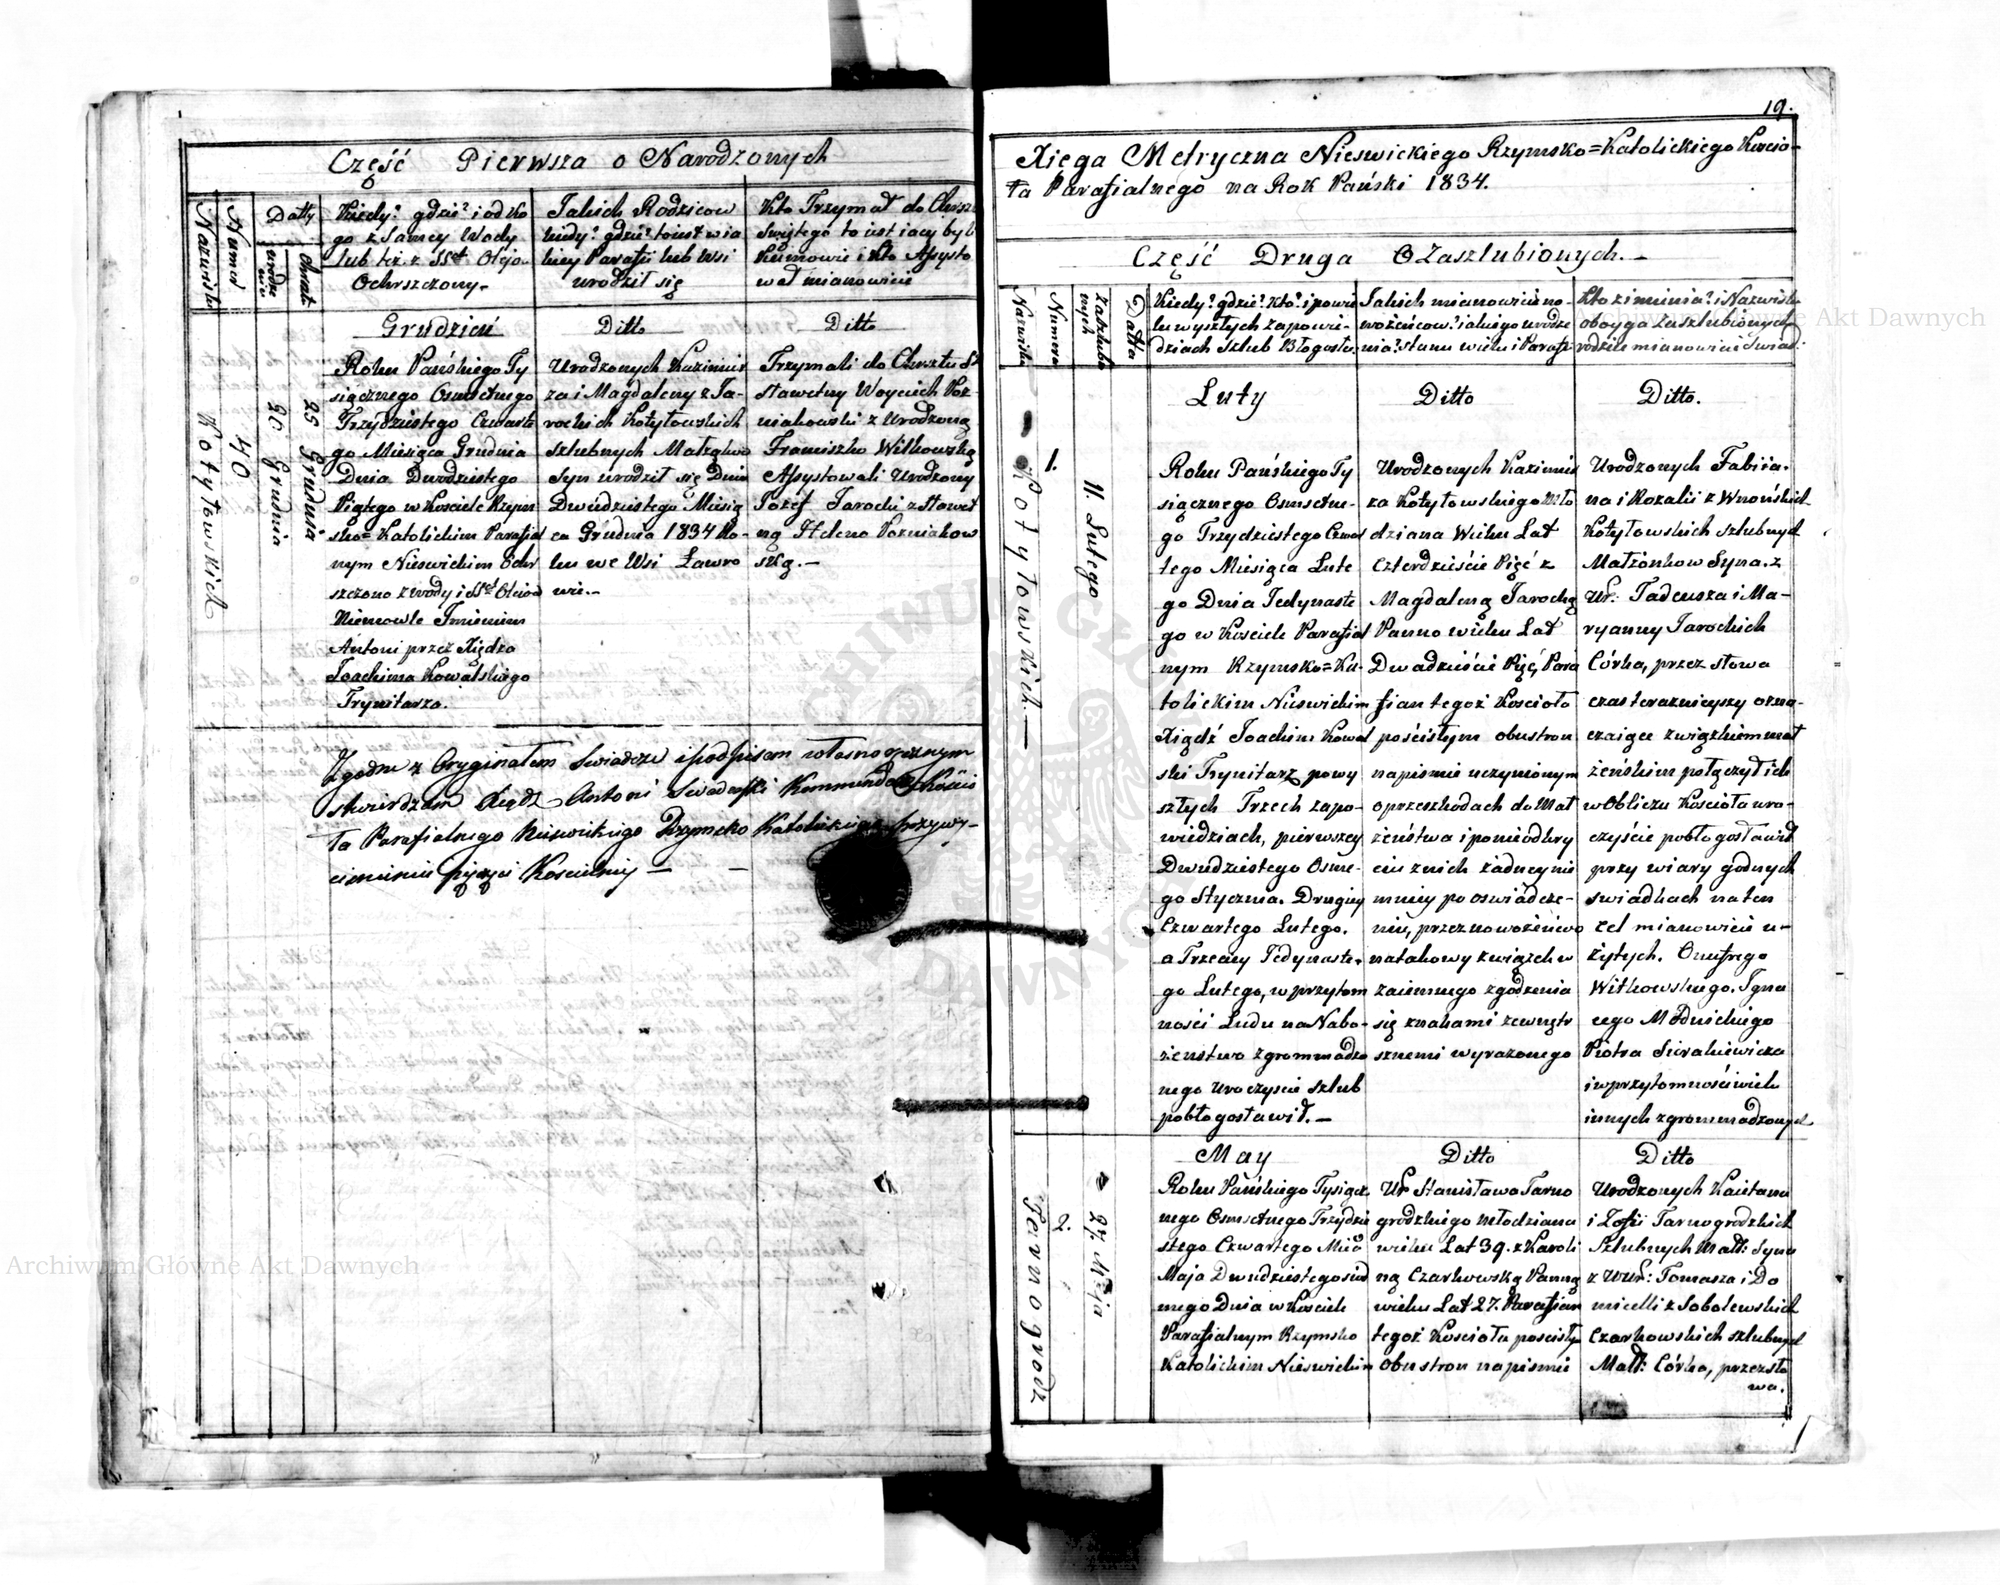 Część Pierwsza o Narodzonych
Nazwisko
Numer
Datty
urodzenia
Chrztu
Kiedy? gdzie? i od Ko
go z Samey Wody
lub też z SSt Olejo
Ochrszczony.
Jakich Rodzicow
kiedy? gdzie? toiest w ia
kiey Parafii lub Wsi
urodził się
Kto Trzymał do Chrsz
Swiętego to iest iacy byli
Kumowie i Kto Assysto
wał mianowicie
Grudzień
Ditto
Ditto
Kotytowskich
40
20 Grudnia
25 Grudnia
Roku Pańskiego Ty
siącznego Osmsetnego
Trzydziestego Czwarte
go Miesiąca Grudnia
Dnia Dwudziestego
Piątego w Kosciele Rzym
sko=Katolickim Parafial
nym Nieswickim Ochr
szczono z wody i SSt Oleiow
Niemowle Jmieniem
Antoni przez Xiędza
Joachima Kowalskiego
Trynitarza.
Urodzonych Kazimier
za i Magdaleny z Ja-
rockich Kotytowskich
szlubnych Małżąkow
Syn urodził się Dnia
Dwudziestego Miesią
ca Grudnia 1834 Ro-
ku we Wsi Ławro
wie.-
Trzymali do Chrztu St
Sławetny Woyciech Poz-
niakowski z Urodzoną
Franciszką Witkowską
Assystowali Urodzony
Jozef Jarocki z Sławet
ną Heleną Pozniakow
ską.-
Zgodnie z Oryginałem Swiadczę i podpisem własnoręcznym
stwierdzam Xiądz Antoni Kommendarz Kościo
ła Parafialnego Nieswickiego Rzymsko Katolickiego przy wy-
cisnieniu pieczęci Koscielney —
19.
Xięga Metryczna Nieswickiego Rzymsko=Katolickiego Koscio-
ła Parafialnego na Rok Pański 1834.
Część Druga O Zaszlubionych.-
Nazwisko
Numero
Zaszlubio
nych
Datta
Kiedy? gdzie? Kto? i po wie
lu wyszłych zapowie-
dziach Szlub Błogosła.
Jakich mianowicie no-
wożeńcow? iakiego urodze
nia? stanu wieku i Parafii
Kto z imienia? i Nazwiska
oboyga zaszlubionych
rodzice mianowicie Swiad:
Luty
Ditto
Ditto.
Kotytowskich—
1.
11. Lutego
Roku Pańskiego Ty
siącznego Osmsetne-
go Trzydziestego Czwar
tego Miesiąca Lute
go Dnia Jedynaste
go w Kosciele Parafial
nym Rzymsko=Ka-
tolickim Nieswickim
Xiądź Joachim Kowal
ski Trynitarz po wy
szłych Trzech zapo-
wiedziach, pierwszey
Dwudziestego Osme-
go Stycznia. Drugiey
Czwartego Lutego.
a Trzeciey Jedynaste-
go Lutego, w przytom
ności Ludu na Nabo-
żeństwo zgromadzo
nego uroczyscie szlub
pobłogosławił.-
Urodzonych Kazimier
za Kotytowskiego Mło
dziana Wieku Lat
Czterdzieście Pięć z
Magdaleną Jarocką
Panną wieku Lat
Dwadzieście Pięć, Para
fian tegoż Kościoła
po ścisłym obustron
na pismie uczynionym
o przeszkodach do Mał
żeństwa i pomiędzy
ciu z nich żadney nie
mniey po oswiadcze-
niu, przez nowożeńcow
na takowy związek w
zaiemnego zgodzenia
się znakami zewnętr
sznemi wyrażonego
Urodzonych Fabija.
na i Rozalii z Wnońskich
Kotytowskich szlubnych
Małżonkow Syna. z
Ur: Tadeusza i Ma-
ryanny Jarockich
Córką, przez słowa
czas teraznieyszy ozna-
czaiące związkiem mał
żeńskim połączył ich
w Obliczu Kościoła uro-
czyście pobłogosławił
przy wiary godnych
swiadkach na ten
cel mianowicie u-
żytych. Onufrego
Witkowskiego. Igna
cego Modnickiego
Piotra Sierakiewicza
i w przytomności wielu
innych zgromadzonych
May
Ditto
Ditto
Tarnogrodz
2.
27. Maja
Roku Pańskiego Tysiącz
nego Osmsetnego Trzydzie
stego Czwartego Mca
Maja Dwudziestego siód
mego Dnia w Kosciele
Parafialnym Rzymsko
Katolickim Nieswickim
Ur Stanisława Tarno
grodzkiego młodziana
wieku Lat 39. z Karoli
ną Czarkowską Panną
wieku Lat 27. Parafian
tegoż Kościoła po scisłym
obustron na pismie
Urodzonych Kaietana
i Zofii Tarnogrodzkich
Szlubnych Małż: Syna
z WUr: Tomasza i Do
micelli z Sobolewskich
Czarkowskich szlubnych
Małż: Córką, przez sło
wa.
Archiwum Główne Akt Dawnych
Archiwum Główne Akt Dawnych
ARCHIWUM GŁÓWNE AKT DAWNYCH